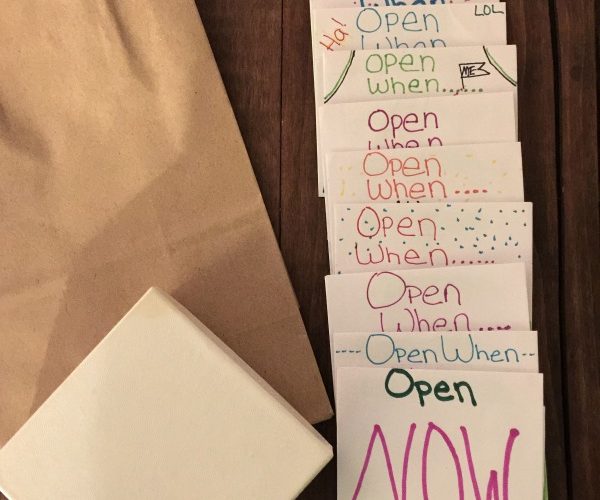 When
Ha!
Open
LOL
When
Open
When......
ME
Open
When
Open
When ....
Open
When......
Open
When....
----Open When--
Open
NOW